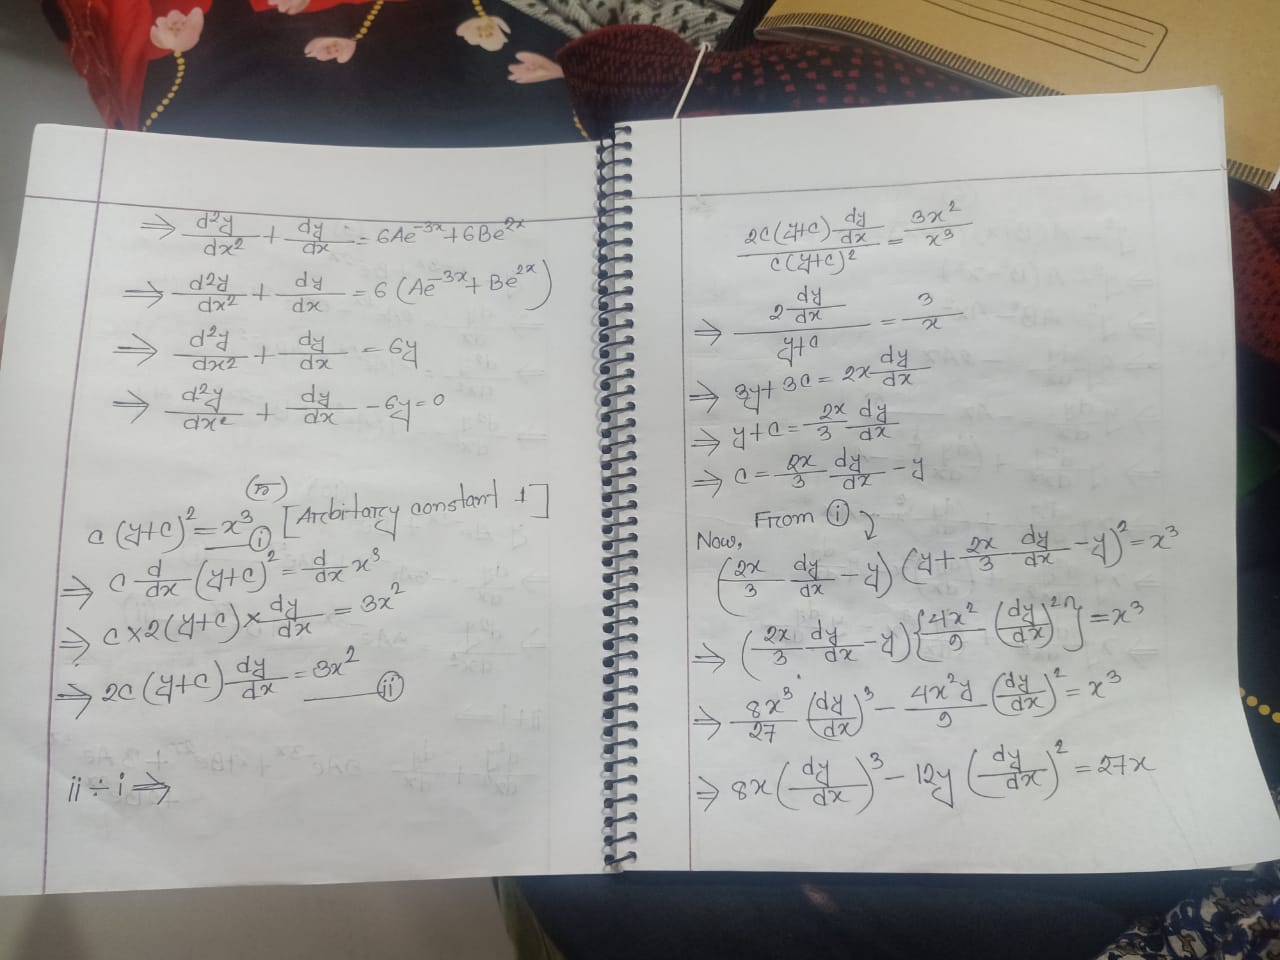 ⇒ d²y/dx² + dy/dx = 6Ae⁻³ˣ + 6Be²ˣ
⇒ d²y/dx² + dy/dx = 6 (Ae⁻³ˣ + Be²ˣ)
⇒ d²y/dx² + dy/dx = 6y
⇒ d²y/dx² + dy/dx - 6y = 0
c (y+c)² = x³ —— (i) [Arbitary constant 1]
⇒ c d/dx (y+c)² = d/dx x³
⇒ c × 2 (y+c) × dy/dx = 3x²
⇒ 2c (y+c) dy/dx = 3x² —— (ii)
ii ÷ i ⇒
2c (y+c) dy/dx / c (y+c)² = 3x²/x³
⇒ 2 dy/dx / y+c = 3/x
⇒ 3y + 3c = 2x dy/dx
⇒ y+c = 2x/3 dy/dx
⇒ c = 2x/3 dy/dx - y
Now, From (i)
(2x/3 dy/dx - y) (y + 2x/3 dy/dx - y)² = x³
⇒ (2x/3 dy/dx - y) {4x²/9 (dy/dx)²} = x³
⇒ 8x³/27 (dy/dx)³ - 4x²y/9 (dy/dx)² = x³
⇒ 8x (dy/dx)³ - 12y (dy/dx)² = 27x